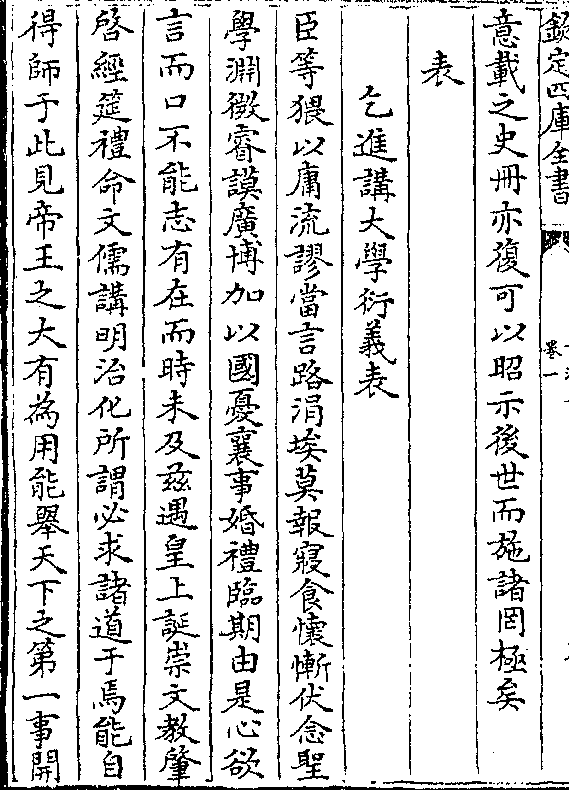 欽定四庫全書
卷一
意載之史冊亦復可以昭示後世而施諸罔極矣
表
乞進講大學衍義表
臣等猥以庸流謬當言路涓埃莫報寢食懷慚伏念聖
學淵微睿謨廣博加以國憂襄事婚禮臨期由是心欲
言而口不能志有在而時未及茲遇皇上誕崇文教肇
啓經筵禮命文儒講明治化所謂必求諸道于焉能自
得師于此見帝王之大有為用能舉天下之第一事開